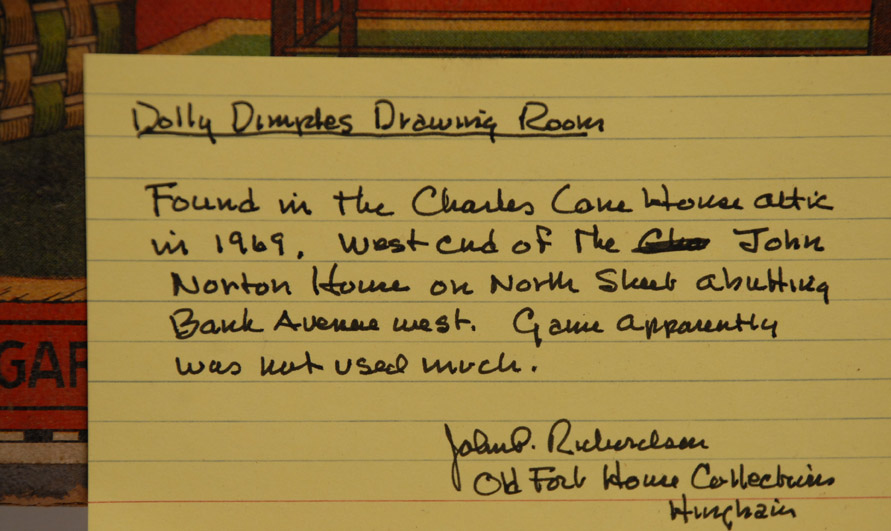 Dolly Dimples Drawing Room
Found in the Charles Cane House attic
in 1969, West end of The John
Norton House on North Street abutting
Bank Avenue west. Game apparently
was not used much.
John P. Richardson
Old Fort House Collections
Hingham
GAR